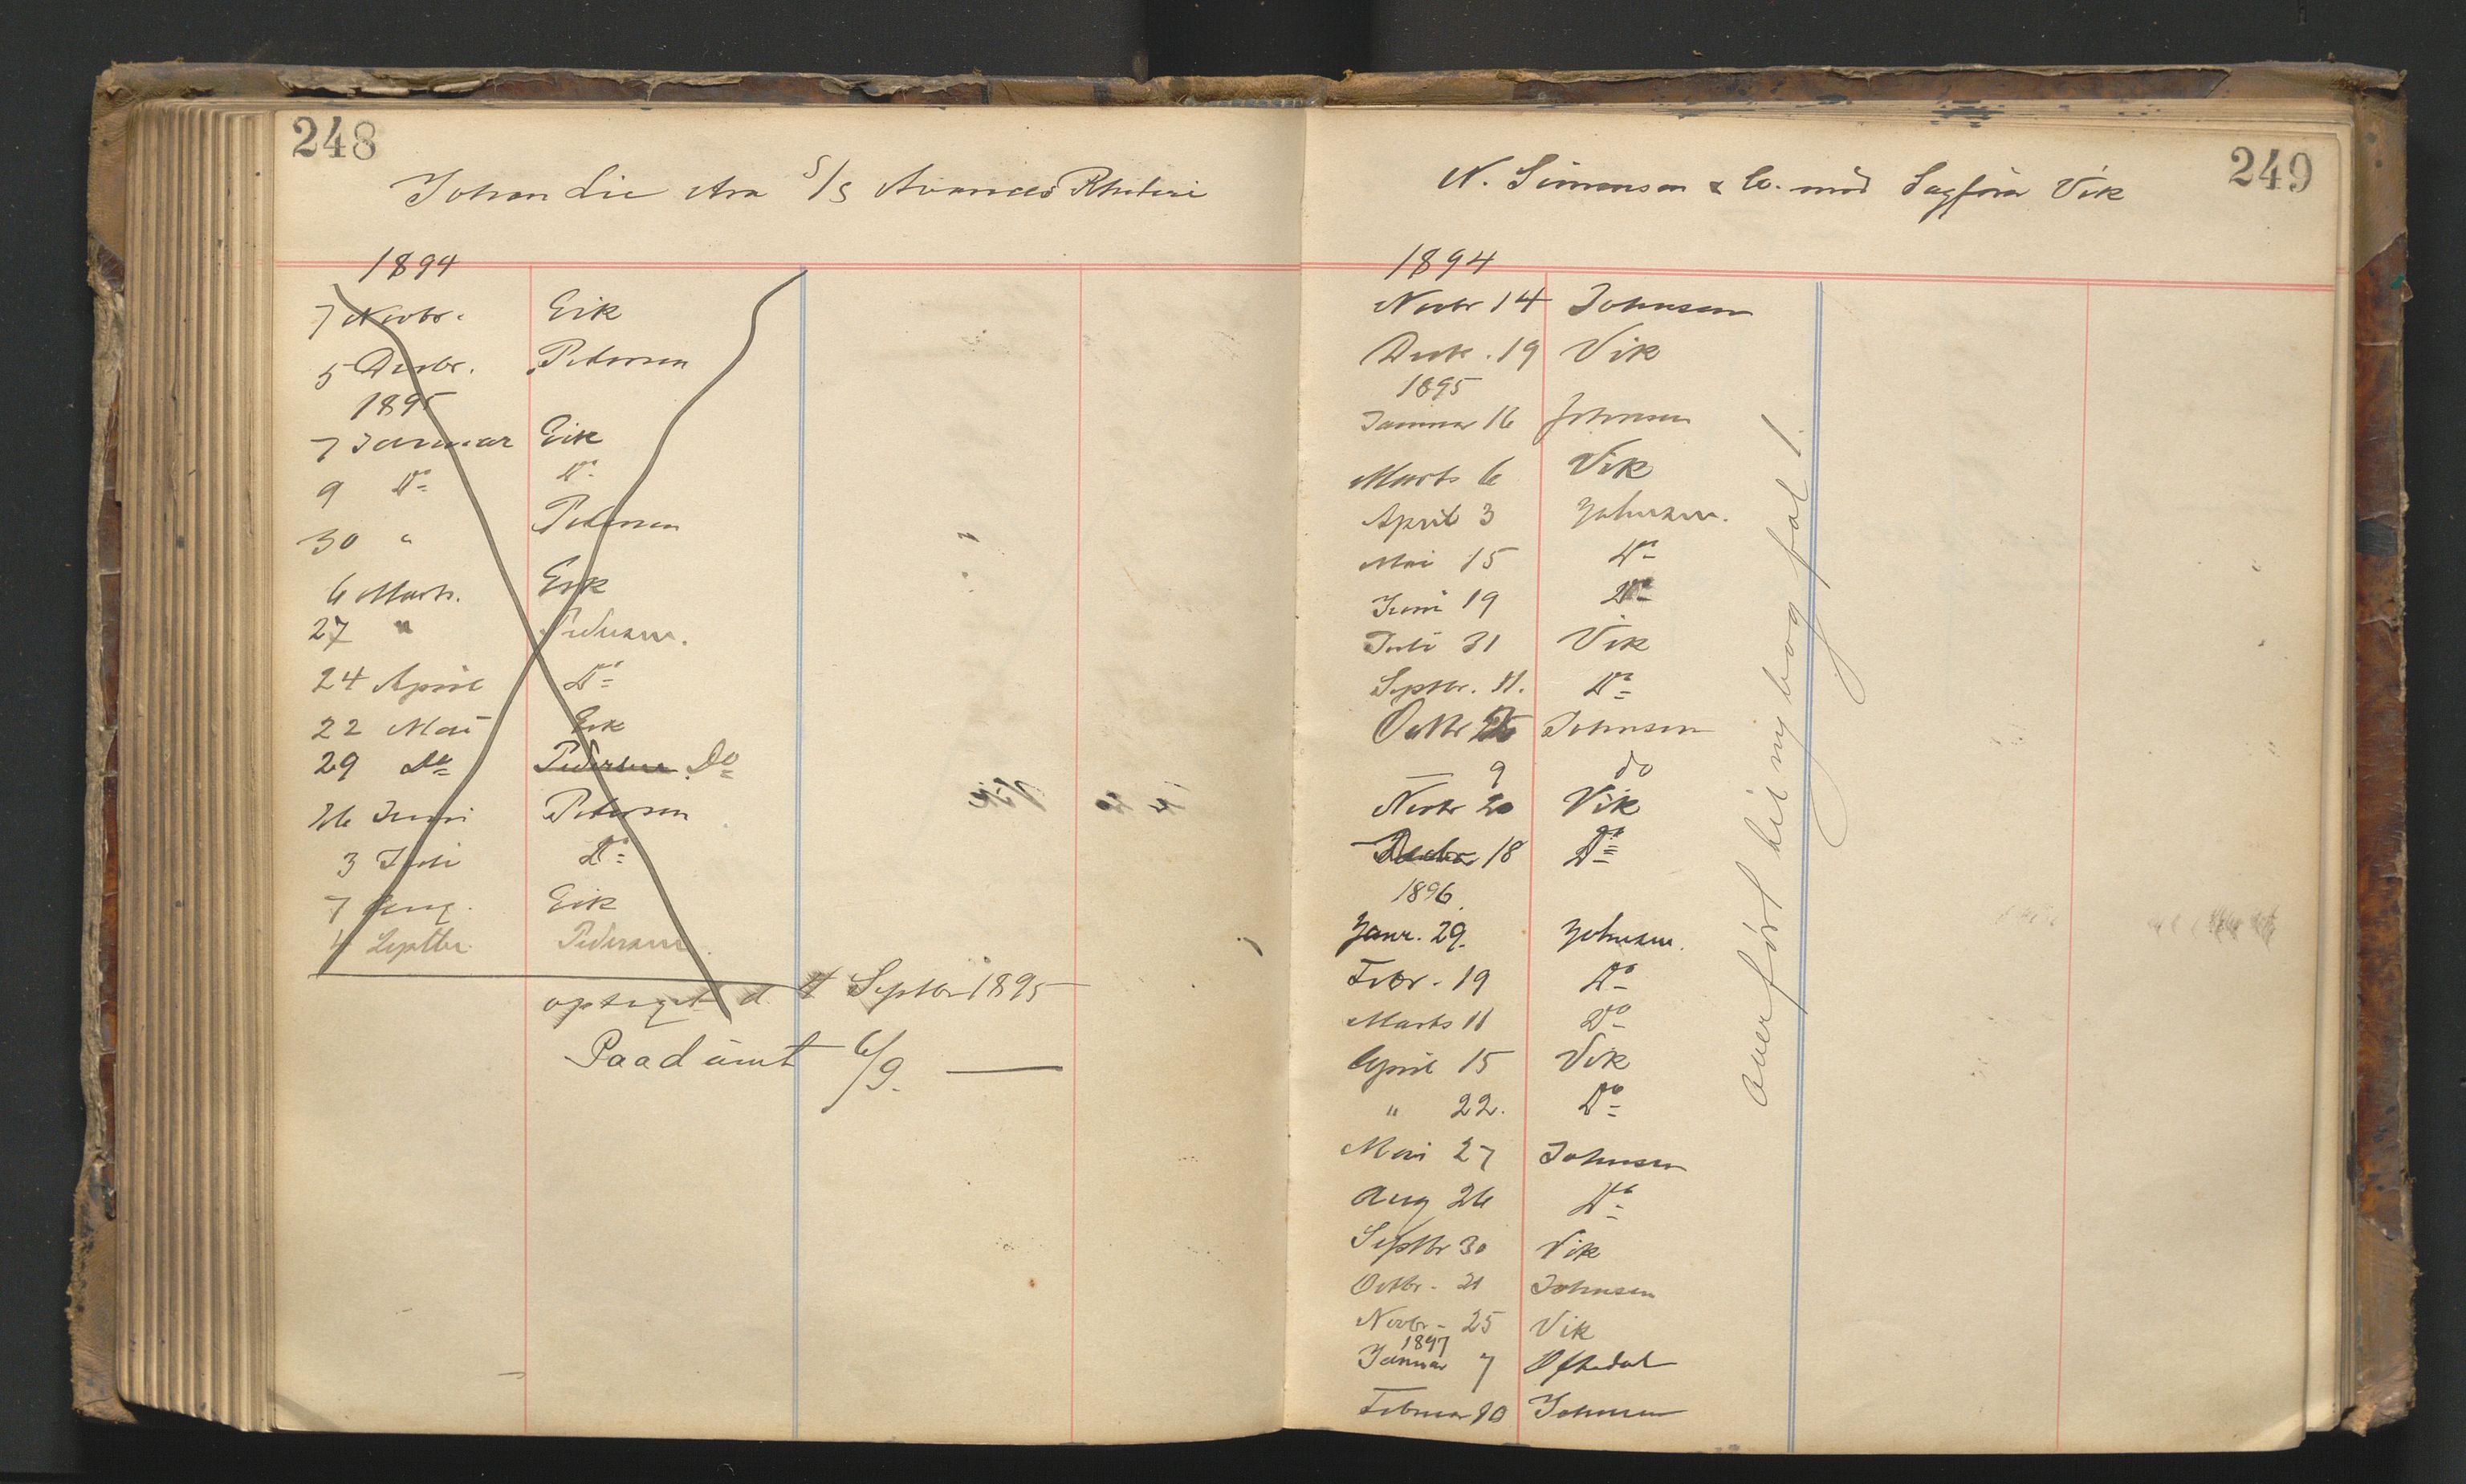 248
Johan Lie Ara S/S Avances Rhederi
1894
7 Novbr. Eik
5 Decbr. Petersen
1895
7 Januar Eik
9 Do Do
30 " Pedersen
6 Marts. Eik
27 " Pedersen.
24 April Do
22 Mai Eik
29 Do Pedersen Do
26 Juni Petersen
3 Juli Do
7 Aug. Eik
4 Septbr. Pedersen.
optaget d. 4 Septbr 1895
Paadømt 6/9.
249
N. Simonsen & Co. mod Sagfører Vik
1894
Novbr 14 Johnsen
Decb. 19 Vik
1895
Januar 16 Johnsen
Marts 6 Vik
April 3 Johnsen.
Mai 15 Do
Juni 19 Do
Juli 31 Vik
Septbr. 11. Do
Octbr Johnsen
9 do
Novbr 20 Vik
Decbr 18 Do
1896.
Janr. 29. Johnsen.
Febr. 19 Do
Marts 11 Do
April 15 Vik
" 22. Do
Mai 27 Johnsen
Aug 26 Do
Septbr 30 Vik
Octbr. 21 Johnsen
Novbr. 25 Vik
1897
Januar 7 Oftedal
Februar 10 Johnsen
overført til ny bog fol 1.